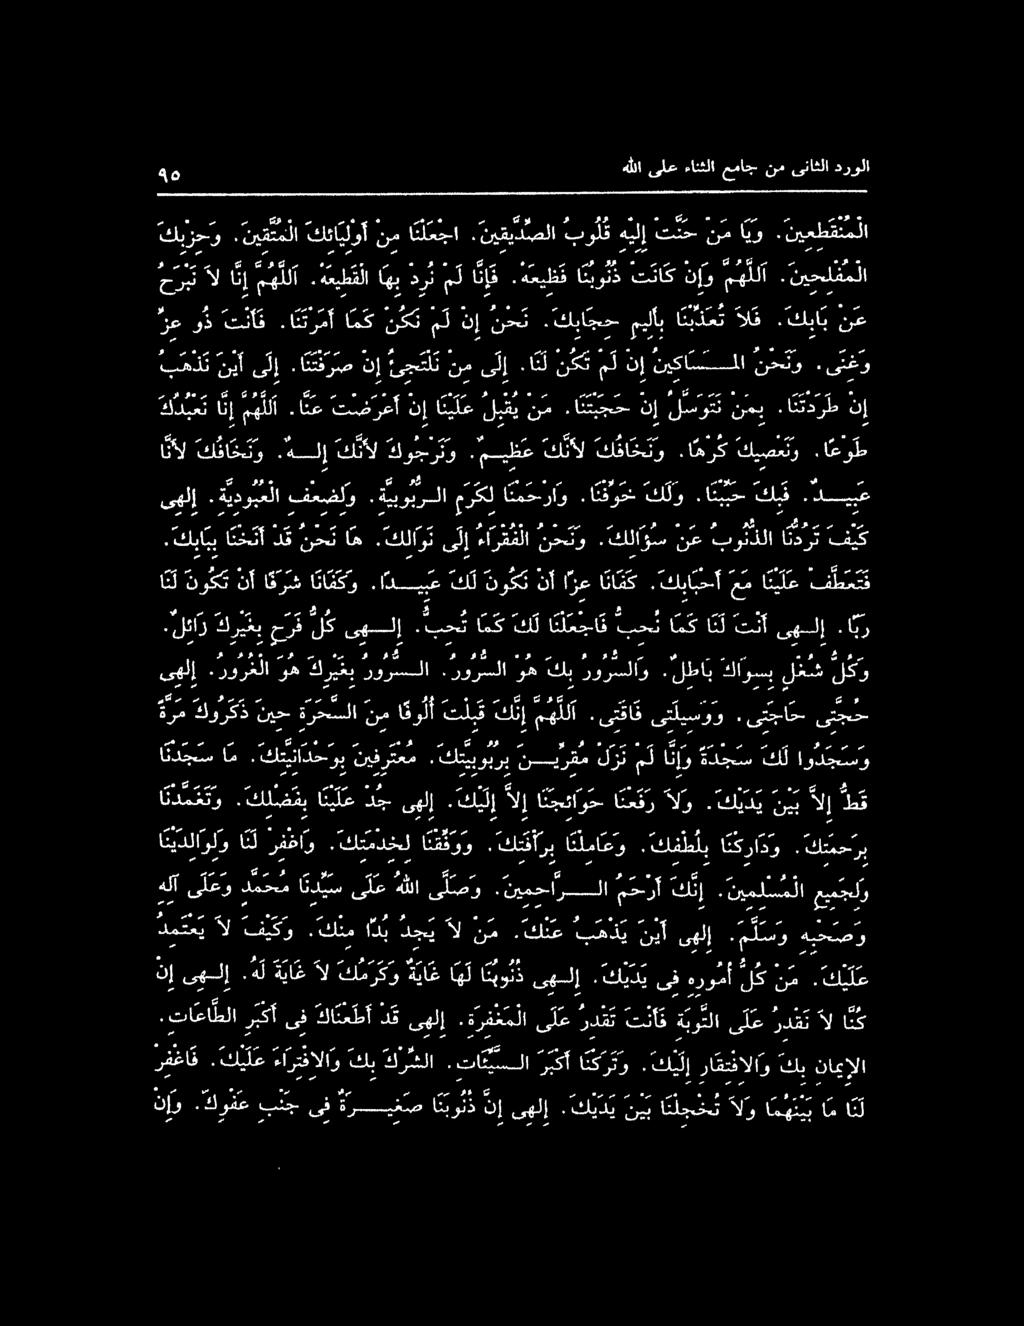 الورد الثانى من جامع الثناء على الله
٩٥
الْمُنْقَطِعِينَ. وَيَا مَنْ حَنَّتْ إِلَيْهِ قُلُوبُ الصِّدِّيقِينَ. اجْعَلْنَا مِنْ أَوْلِيَائِكَ الْمُتَّقِينَ. وَحِزْبِكَ
الْمُفْلِحِينَ. اَللَّهُمَّ وَإِنْ كَانَتْ ذُنُوبُنَا فَظِيعَهْ. فَإِنَّا لَمْ نُرِدْ بِهَا الْقَطِيعَهْ. اَللَّهُمَّ إِنَّا لاَ نَبْرَحُ
عَنْ بَابِكَ. فَلاَ تُعَذِّبْنَا بِأَلِيمِ حِجَابِكَ. نَحْنُ إِنْ لَمْ نَكُنْ كَمَا أَمَرْتَنَا. فَأَنْتَ ذُو عِزٍّ
وَغِنَى. وَنَحْنُ الْمَسَاكِينُ إِنْ لَمْ تَكُنْ لَنَا. إِلَى مَنْ نَلْتَجِئُ إِنْ صَرَفْتَنَا. إِلَى أَيْنَ نَذْهَبُ
إِنْ طَرَدْتَنَا. بِمَنْ نَتَوَسَّلُ إِنْ حَجَبْتَنَا. مَنْ يُقْبِلُ عَلَيْنَا إِنْ أَعْرَضْتَ عَنَّا. اَللَّهُمَّ إِنَّا نَعْبُدُكَ
طَوْعًا. وَنَعْصِيكَ كُرْهًا. وَنَخَافُكَ لأَنَّكَ عَظِيمٌ. وَنَرْجُوكَ لأَنَّكَ إِلهٌ. وَنَخَافُكَ لأَنَّا
عَبِيدٌ. فَبِكَ حُبُّنَا. وَلَكَ خَوْفُنَا. وَارْحَمْنَا لِكَرَمِ الرُّبُوبِيَّةِ. وَلِضَعْفِ الْعُبُودِيَّةِ. إِلهِى
كَيْفَ تَرُدُّنَا الذُّنُوبُ عَنْ سُؤَالِكَ. وَنَحْنُ الْفُقَرَاءُ إِلَى نَوَالِكَ. هَا نَحْنُ قَدْ أَنَخْنَا بِبَابِكَ.
فَتَعَطَّفْ عَلَيْنَا مَعَ أَحْبَابِكَ. كَفَانَا عِزًّا أَنْ نَكُونَ لَكَ عَبِيدًا. وَكَفَانَا شَرَفًا أَنْ تَكُونَ لَنَا
رَبًّا. إِلهِى أَنْتَ لَنَا كَمَا نُحِبُّ فَاجْعَلْنَا لَكَ كَمَا تُحِبُّ. إِلهِى كُلُّ فَرَحٍ بِغَيْرِكَ زَائِلٌ.
وَكُلُّ شُغْلٍ بِسِوَاكَ بَاطِلٌ. وَالسُّرُورُ بِكَ هُوَ السُّرُورُ. السُّرُورُ بِغَيْرِكَ هُوَ الْغُرُورُ. إِلهِى
حُجَّتِى حَاجَتِى. وَوَسِيلَتِى فَاقَتِى. اَللَّهُمَّ إِنَّكَ قَبِلْتَ أُلُوفًا مِنَ السَّحَرَةِ حِينَ ذَكَرُوكَ مَرَّةً
وَسَجَدُوا لَكَ سَجْدَةً وَإِنَّا لَمْ نَزَلْ مُقِرِّينَ بِرُبُوبِيَّتِكَ. مُعْتَرِفِينَ بِوَحْدَانِيَّتِكَ. مَا سَجَدْنَا
قَطُّ إِلاَّ بَيْنَ يَدَيْكَ. وَلاَ رَفَعْنَا حَوَائِجَنَا إِلاَّ إِلَيْكَ. إِلهِى جُدْ عَلَيْنَا بِفَضْلِكَ. وَتَغَمَّدْنَا
بِرَحْمَتِكَ. وَدَارِكْنَا بِلُطْفِكَ. وَعَامِلْنَا بِرَأْفَتِكَ. وَوَفِّقْنَا لِخِدْمَتِكَ. وَاغْفِرْ لَنَا وَلِوَالِدَيْنَا
وَلِجَمِيعِ الْمُسْلِمِينَ. إِنَّكَ أَرْحَمُ الرَّاحِمِينَ. وَصَلَّى اللهُ عَلَى سَيِّدِنَا مُحَمَّدٍ وَعَلَى آلِهِ
وَصَحْبِهِ وَسَلَّمَ. إِلهِى أَيْنَ يَذْهَبُ عَنْكَ. مَنْ لاَ يَجِدُ بُدًّا مِنْكَ. وَكَيْفَ لاَ يَعْتَمِدُ
عَلَيْكَ. مَنْ كُلُّ أُمُورِهِ فِى يَدَيْكَ. إِلهِى ذُنُوبُنَا لَهَا غَايَةٌ وَكَرَمُكَ لاَ غَايَةَ لَهُ. إِلهِى إِنْ
كُنَّا لاَ نَقْدِرُ عَلَى التَّوْبَةِ فَأَنْتَ تَقْدِرُ عَلَى الْمَغْفِرَةِ. إِلهِى قَدْ أَطَعْنَاكَ فِى أَكْبَرِ الطَّاعَاتِ.
الإِيمَانِ بِكَ وَالاِفْتِقَارِ إِلَيْكَ. وَتَرَكْنَا أَكْبَرَ السَّيِّئَاتِ. الشِّرْكَ بِكَ وَالاِفْتِرَاءَ عَلَيْكَ. فَاغْفِرْ
لَنَا مَا بَيْنَهُمَا وَلاَ تُخْجِلْنَا بَيْنَ يَدَيْكَ. إِلهِى إِنَّ ذُنُوبَنَا صَغِيرَةٌ فِى جَنْبِ عَفْوِكَ. وَإِنْ